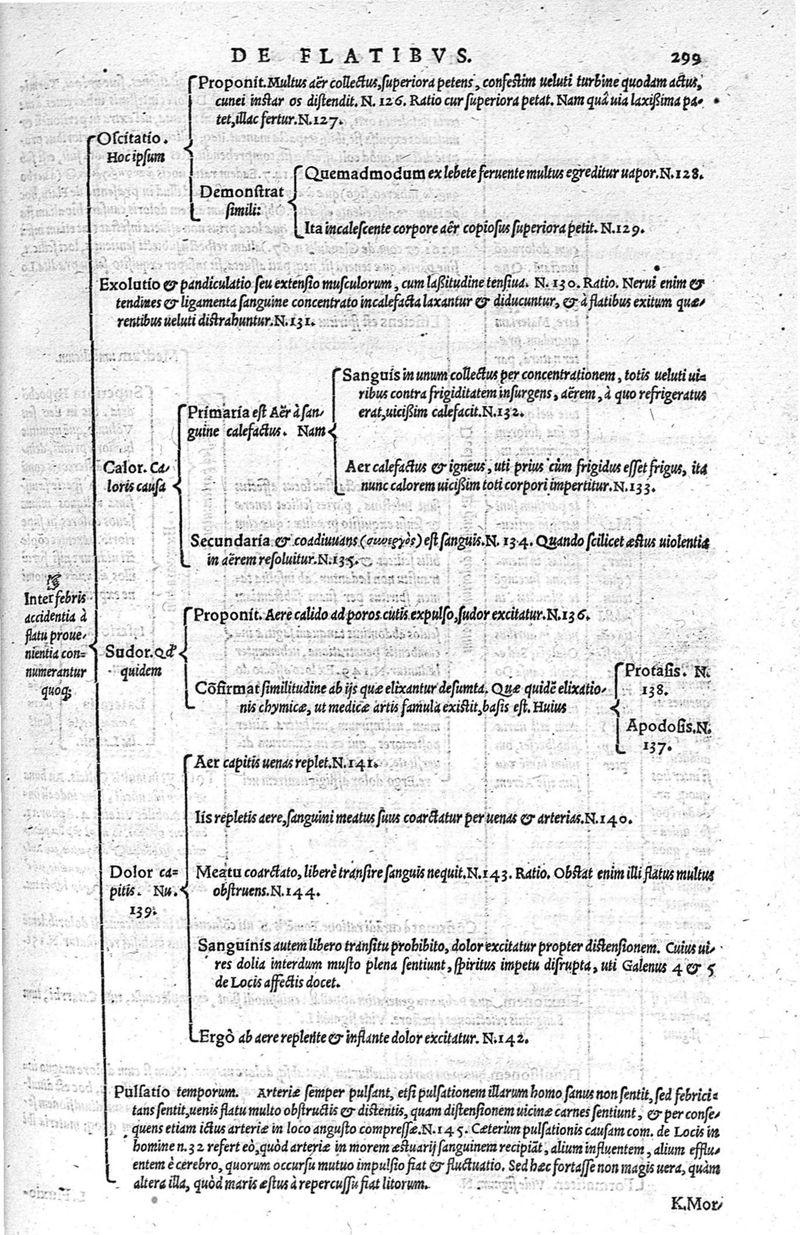 DE FLATIBVS.
299
Proponit. Multus aër collectus, superiora petens, confestim ueluti turbine quodam actus,
cunei instar os distendit. N. 126. Ratio cur superiora petat. Nam quâ uia laxißima pa-
tet, illac fertur. N. 127.
Oscitatio.
Hoc ipsum
Demonstrat
simili:
Quemadmodum ex lebete feruente multus egreditur uapor. N. 128.
Ita incalescente corpore aër copiosus superiora petit. N. 129.
Exolutio & pandiculatio seu extensio musculorum, cum laßitudine tensiua. N. 130. Ratio. Nerui enim &
tendines & ligamenta sanguine concentrato incalefacta laxantur & diducuntur, & à flatibus exitum quæ-
rentibus ueluti distrahuntur. N. 131.
Calor. Ca-
loris causa
Primaria est Aër à san-
guine calefactus. Nam
Sanguis in unum collectus per concentrationem, totis ueluti ui-
ribus contra frigiditatem insurgens, aërem, à quo refrigeratus
erat, uicißim calefacit. N. 132.
Aer calefactus & igneus, uti prius cùm frigidus esset frigus, ita
nunc calorem uicißim toti corpori impertitur. N. 133.
Secundaria & coadiuuans (συνεργὸς) est sanguis. N. 134. Quando scilicet æstus uiolentia
in aërem resoluitur. N. 135.
☞
Inter febris
accidentia à
flatu proue-
nientia con-
numerantur
quoq;
Sudor. Qđ
quidem
Proponit. Aere calido ad poros cutis expulso, sudor excitatur. N. 136.
Cōfirmat similitudine ab ijs quæ elixantur desumta. Quæ quidē elixatio-
nis chymicæ, ut medicæ artis famula existit, basis est. Huius
Protasis. N.
138.
Apodosis. N.
137.
Dolor ca-
pitis. Nu.
139.
Aer capitis uenas replet. N. 141.
Iis repletis aere, sanguini meatus suus coarctatur per uenas & arterias. N. 140.
Meatu coarctato, liberè transire sanguis nequit. N. 143. Ratio. Obstat enim illi flatus multus
obstruens. N. 144.
Sanguinis autem libero transitu prohibito, dolor excitatur propter distensionem. Cuius ui-
res dolia interdum musto plena sentiunt, spiritus impetu disrupta, uti Galenus 4 & 5
de Locis affectis docet.
Ergò ab aere replente & inflante dolor excitatur. N. 142.
Pulsatio temporum. Arteriæ semper pulsant, etsi pulsationem illarum homo sanus non sentit, sed febrici-
tans sentit, uenis flatu multo obstructis & distentis, quam distensionem uicinæ carnes sentiunt, & per conse-
quens etiam ictus arteriæ in loco angusto compressæ. N. 145. Cæterùm pulsationis causam com. de Locis in
homine n. 32 refert eò, quòd arteriæ in morem æstuarij sanguinem recipiāt, alium influentem, alium efflu-
entem è cerebro, quorum occursu mutuo impulsio fiat & fluctuatio. Sed hæc fortasse non magis uera, quàm
altera illa, quòd maris æstus à repercussu fiat litorum.
K. Mor-